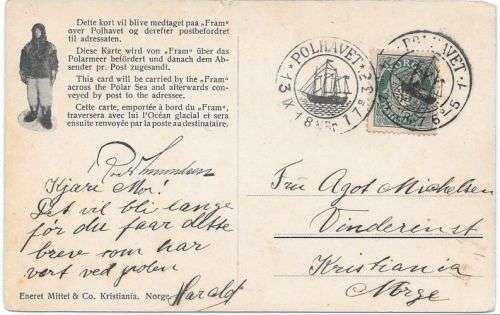 Dette kort vil blive medtaget paa „Fram“
over Polhavet og derefter postbefordret
til adressaten.
Diese Karte wird von „Fram“ über das
Polarmeer befördert und danach dem Ab-
sender pr. Post zugesandt.
This card will be carried by the „Fram“
across the Polar Sea and afterwards con-
veyed by post to the adressee.
Cette carte, emportée à bord du „Fram“,
traversera avec lui l'Océan glacial et sera
ensuite renvoyée par la poste au destinataire.
POLHAVET
POLHAVET
NORGE
Kjære Mor!
Det vil bli længe
før du faar dette
brev som har
vært ved polen
Harald
Eneret Mittet & Co. Kristiania. Norge.
Fru Agot Michelsen
Vinderinst
Kristiania
Norge